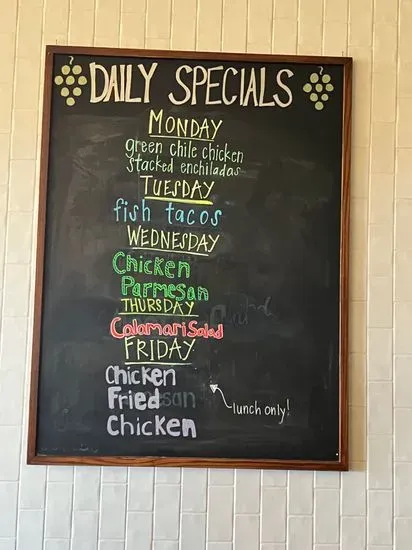 DAILY SPECIALS
MONDAY
green chile chicken
stacked enchiladas
TUESDAY
fish tacos
WEDNESDAY
Chicken
Parmesan
THURSDAY
Calamari Salad
FRIDAY
Chicken
Fried
Chicken
lunch only!